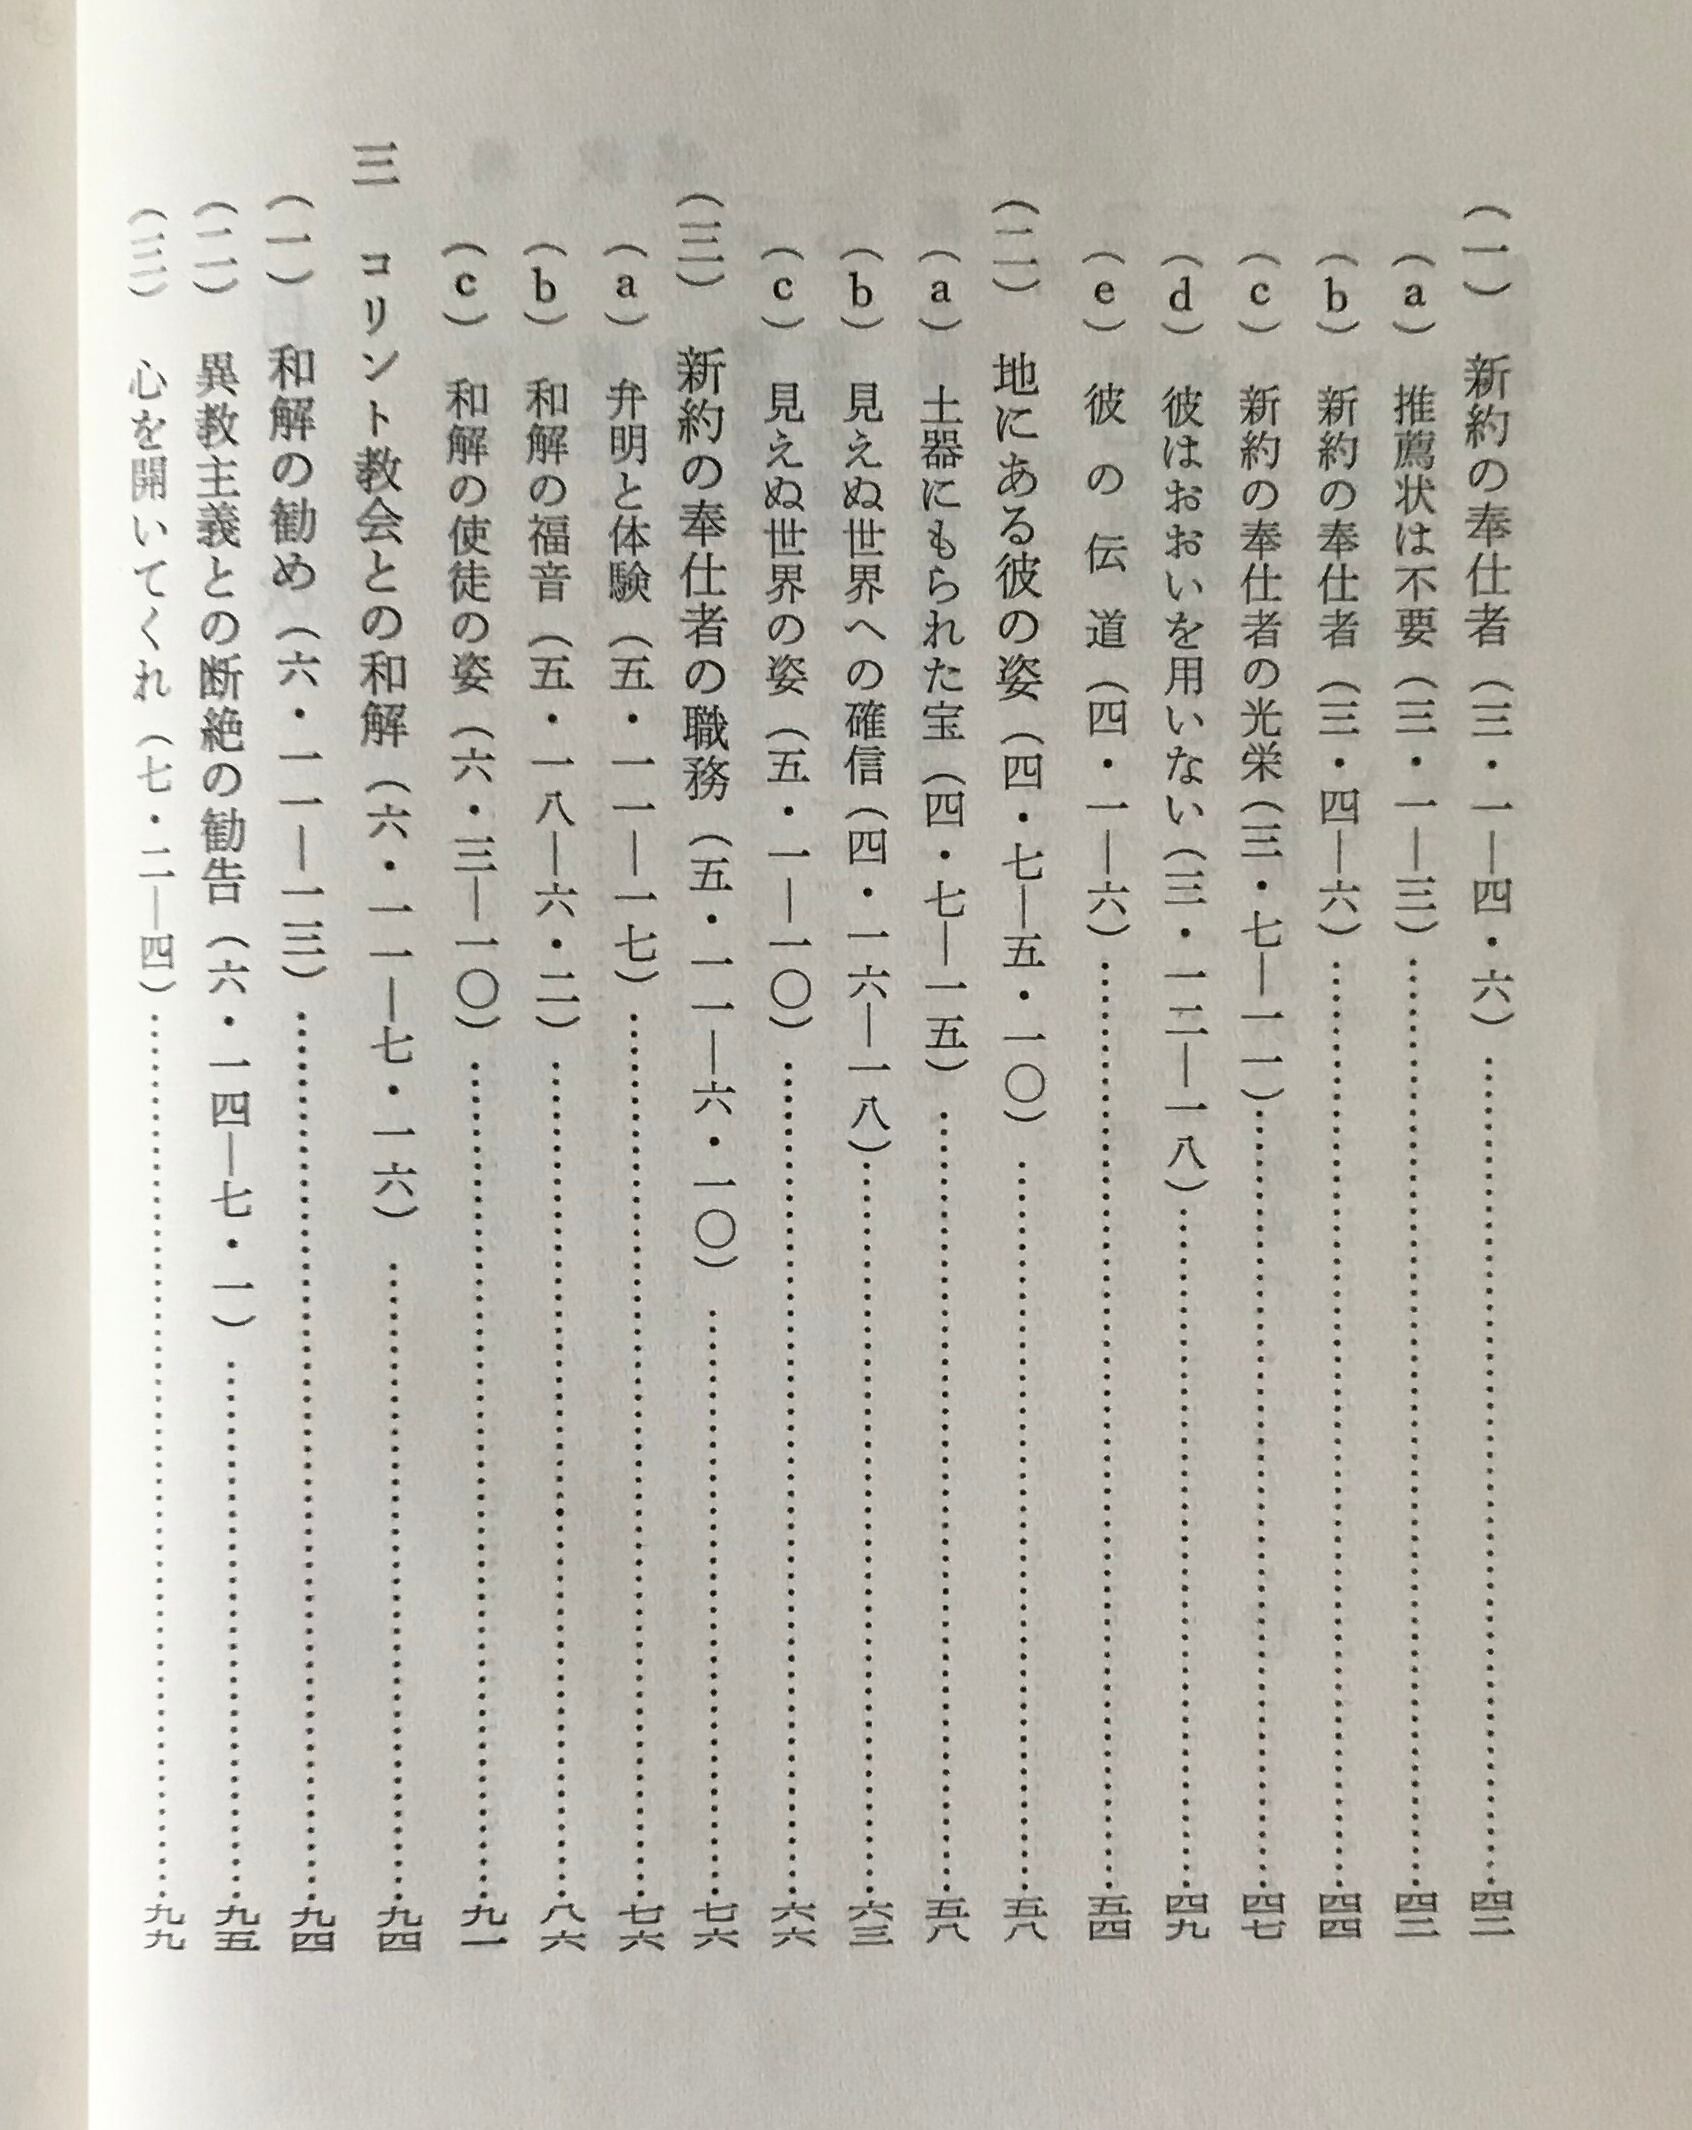 (一) 新約の奉仕者 (三・一―四・六) ……四二
(a) 推薦状は不要 (三・一―三) ……四二
(b) 新約の奉仕者 (三・四―六) ……四四
(c) 新約の奉仕者の光栄 (三・七―一一) ……四七
(d) 彼はおおいを用いない (三・一二―一八) ……四九
(e) 彼の伝道 (四・一―六) ……五四
(二) 地にある彼の姿 (四・七―五・一〇) ……五八
(a) 土器にもられた宝 (四・七―一五) ……五八
(b) 見えぬ世界への確信 (四・一六―一八) ……六三
(c) 見えぬ世界の姿 (五・一―一〇) ……六六
(三) 新約の奉仕者の職務 (五・一一―六・一〇) ……七六
(a) 弁明と体験 (五・一一―一七) ……七六
(b) 和解の福音 (五・一八―六・二) ……八六
(c) 和解の使徒の姿 (六・三―一〇) ……九一
三 コリント教会との和解 (六・一一―七・一六) ……九四
(一) 和解の勧め (六・一一―一三) ……九四
(二) 異教主義との断絶の勧告 (六・一四―七・一) ……九五
(三) 心を開いてくれ (七・二―四) ……九九